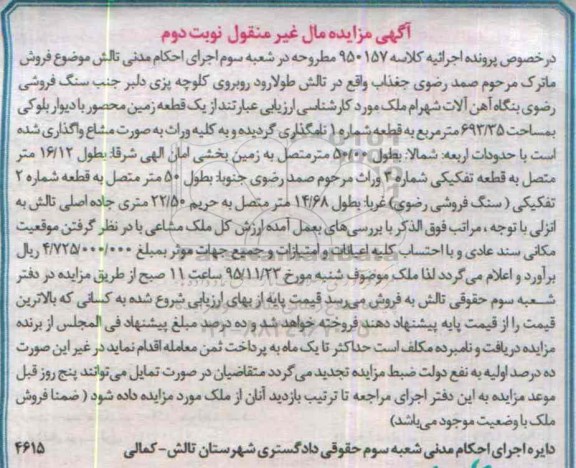 آگهی مزایده مال غیر منقول نوبت دوم
درخصوص پرونده اجرائیه کلاسه ۹۵۰۱۵۷ مطروحه در شعبه سوم اجرای احکام مدنی تالش موضوع فروش
ماترک مرحوم صمد رضوی جغذاب واقع در تالش طولارود روبروی کلوچه پزی دلبر جنب سنگ فروشی
رضوی بنگاه آهن آلات شهرام ملک مورد کارشناسی ارزیابی عبارتند از یک قطعه زمین محصور با دیوار بلوکی
بمساحت ۶۹۳/۳۵ مترمربع به قطعه شماره ۱ نامگذاری گردیده و به کلیه وراث به صورت مشاع واگذاری شده
است با حدودات اربعه: شمالا: بطول ۵۰/۰۰ مترمتصل به زمین بخشی امان الهی شرقا: بطول ۱۶/۱۲ متر
متصل به قطعه تفکیکی شماره ۳ وراث مرحوم صمد رضوی جنوبا: بطول ۵۰ متر متصل به قطعه شماره ۲
تفکیکی ( سنگ فروشی رضوی) غربا: بطول ۱۴/۶۸ متر متصل به حریم ۲۲/۵۰ متری جاده اصلی تالش به
انزلی با توجه ، مراتب فوق الذکر با بررسی‌های بعمل آمده ارزش کل ملک مشاعی با در نظر گرفتن موقعیت
مکانی سند عادی و با احتساب کلیه اعیانات و امتیازات و جمیع جهات موثر بمبلغ ۴/۷۲۵/۰۰۰/۰۰۰ ریال
برآورد و اعلام می گردد لذا ملک موصوف شنبه مورخ ۹۵/۱۱/۲۳ ساعت ۱۱ صبح از طریق مزایده در دفتر
شعبه سوم حقوقی تالش به فروش می‌رسد قیمت پایه از بهای ارزیابی شروع شده به کسانی که بالاترین
قیمت را از قیمت پایه پیشنهاد دهند فروخته خواهد شد و ده درصد مبلغ پیشنهاد فی المجلس از برنده
مزایده دریافت و نامبرده مکلف است حداکثر تا یک ماه به پرداخت ثمن معامله اقدام نماید در غیر این صورت
ده درصد اولیه به نفع دولت ضبط مزایده تجدید می گردد متقاضیان در صورت تمایل می‌توانند پنج روز قبل
موعد مزایده به این دفتر اجرای مراجعه تا ترتیب بازدید آنان از ملک مورد مزایده داده شود ( ضمنا فروش
ملک با وضعیت موجود می‌باشد)
دایره اجرای احکام مدنی شعبه سوم حقوقی دادگستری شهرستان تالش - کمالی ۴۶۱۵